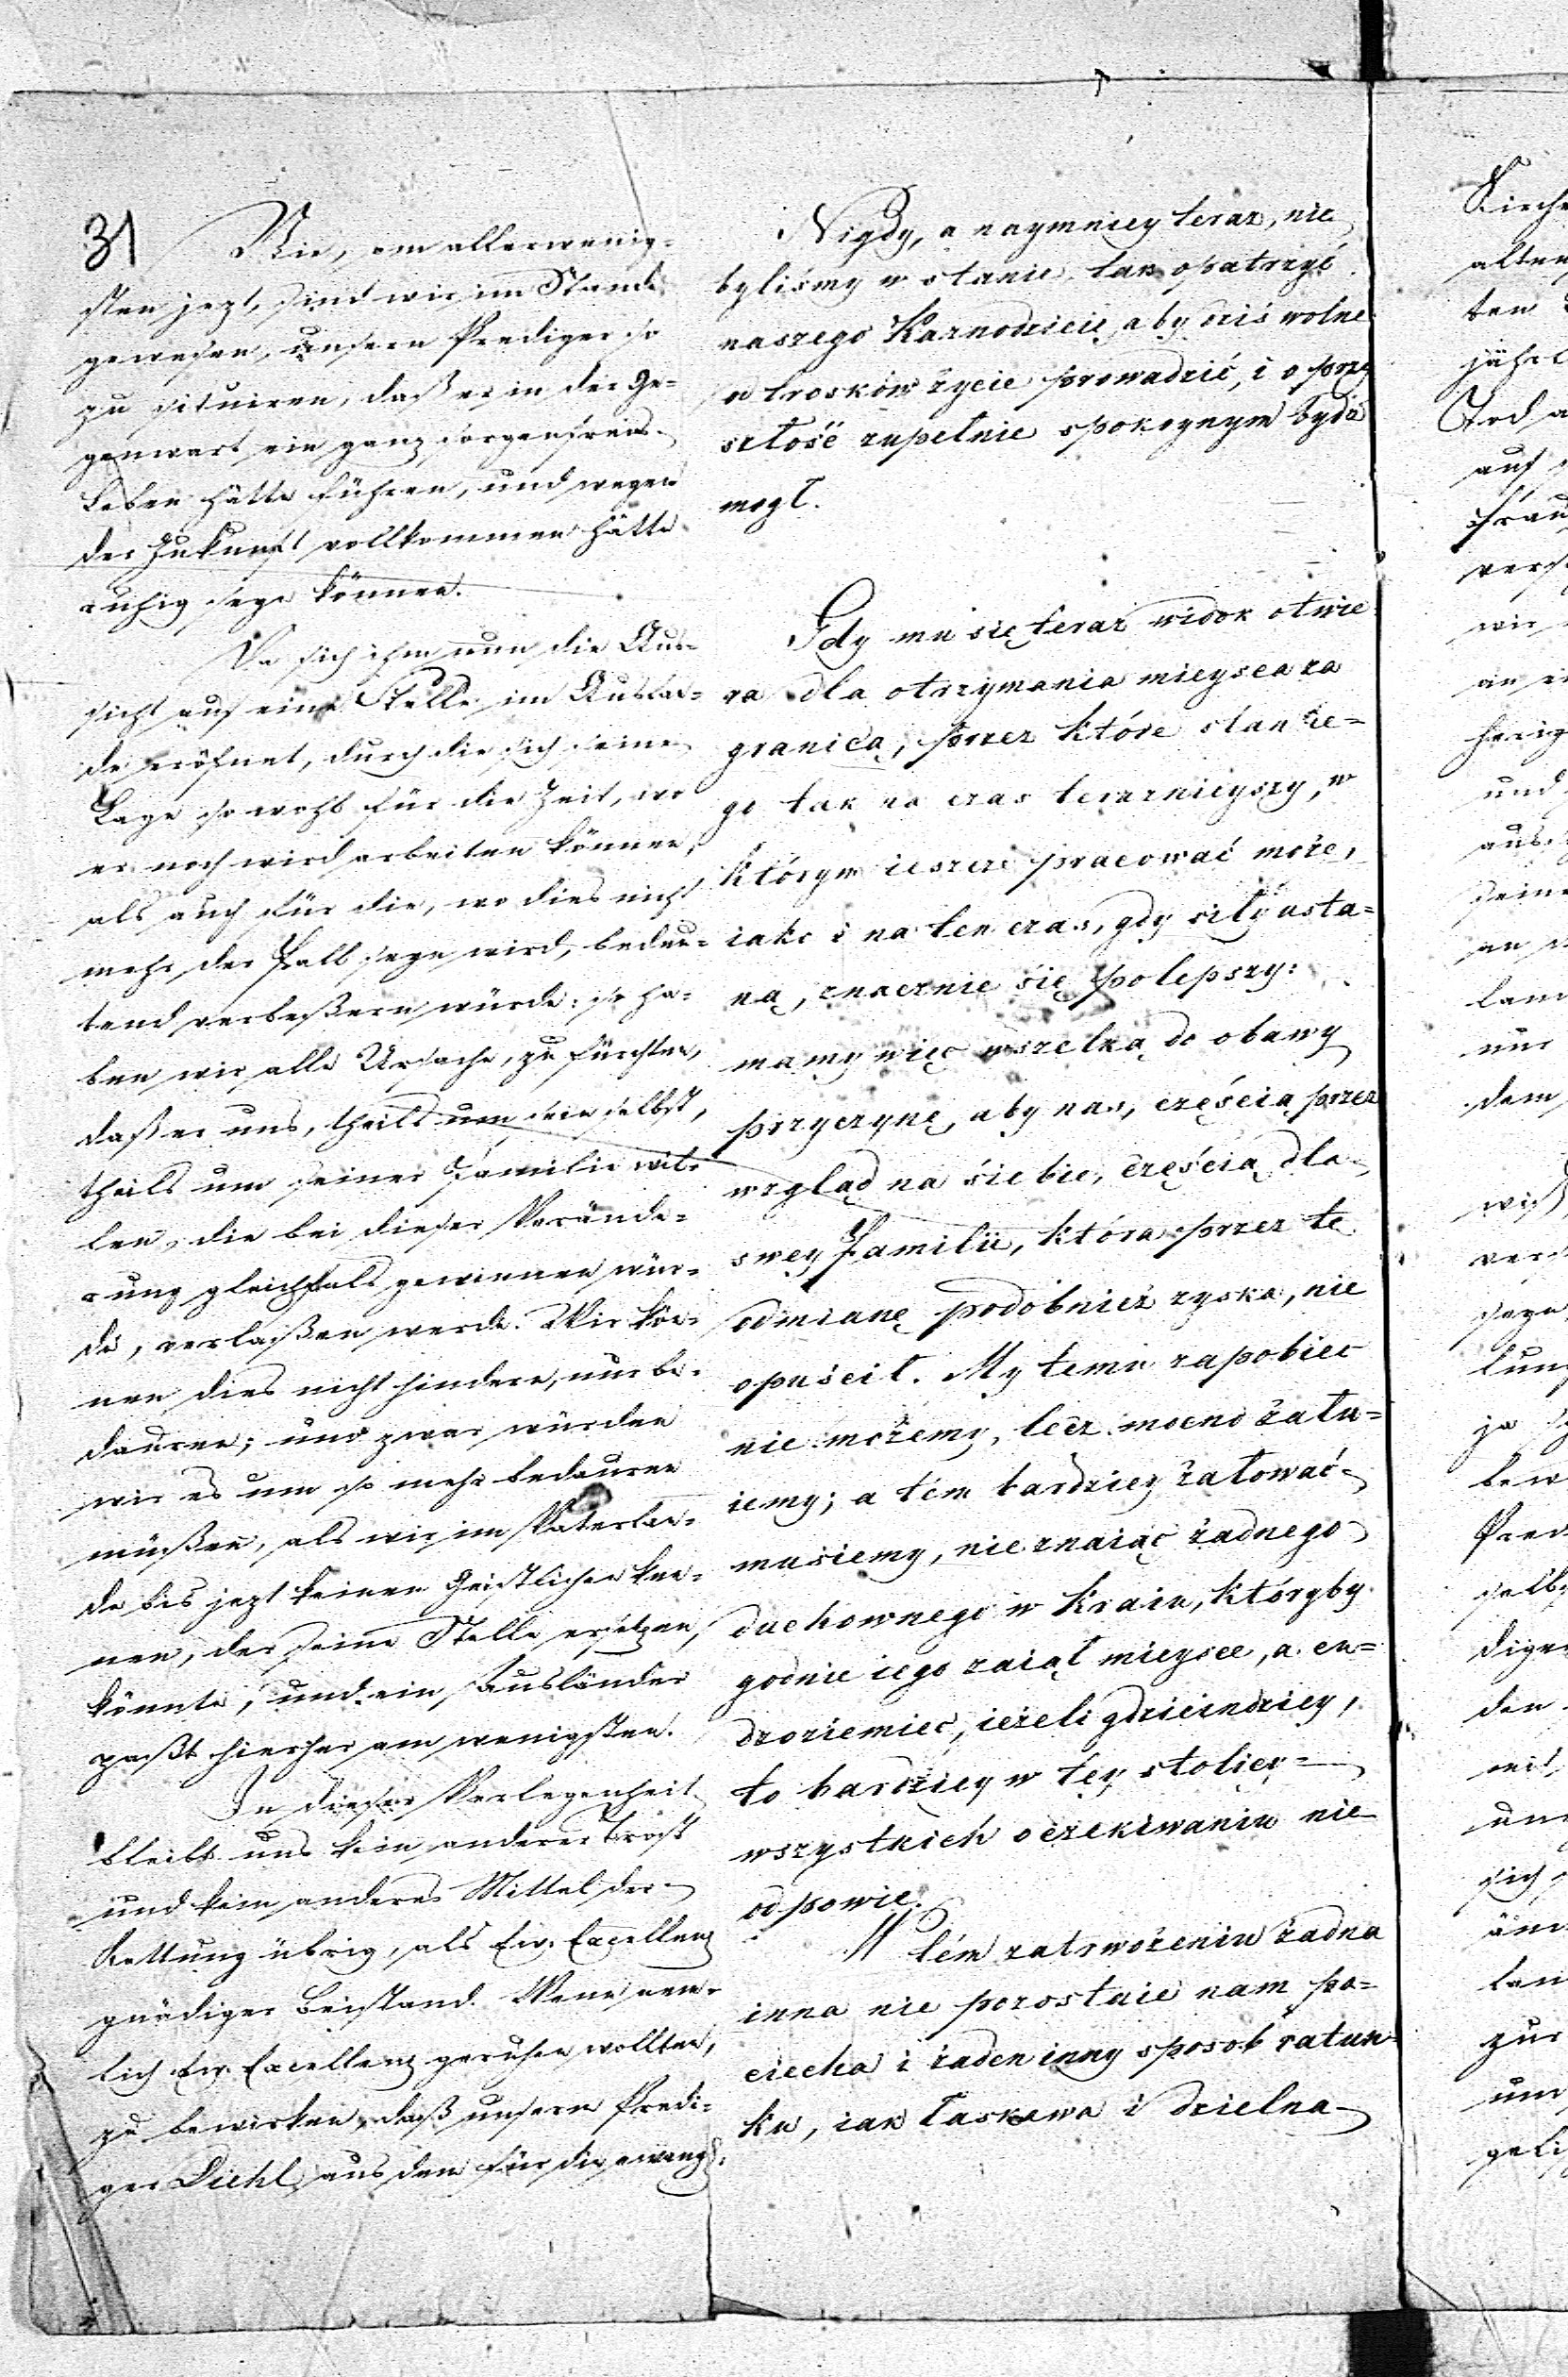 31
Nie, am allerwenig-
sten jezt, sind wir im Stande
gewesen, unsern Prediger so
zu situiren, daß er in der Ge-
genwart ein ganz sorgenfreies
Leben hätte führen, und wegen
der Zukunft vollkommen hätte
ruhig seyn können.
Da sich ihm nun die Aus-
sicht auf eine Stelle im Auslan-
de eröfnet, durch die sich seine
Lage so wohl für die Zeit, wo
er noch wird arbeiten können,
als auch für die, wo dies nicht
mehr der Fall seyn wird, bedeu-
tend verbeßern würde: so ha-
ben wir alle Ursache, zu fürchten,
daß er uns, theils um sein selbst,
theils um seiner Familie wil-
len, die bei dieser Verände-
rung gleichfals gewinnen wür-
de, verlaßen werde. Wir kön-
nen dies nicht hindern, nur be-
dauren; und zwar würden
wir es um so mehr bedauren
müßen, als wir im Vaterlan-
de bis jezt keinen Geistlichen ken-
nen, der seine Stelle ersetzen
könnte, und ein Ausländer
paßt hierher am wenigsten.
In dieser Verlegenheit
bleibt uns kein anderer Trost
und kein anderes Mittel der
Rettung übrig, als Ew. Excellenz
gnädiger Beistand. Wenn nem-
lich Ew. Excellenz geruhen wollten,
zu bewirken, daß unserm Predi-
ger Diehl aus dem für die evangl.
Nigdy, a naymniey teraz, nie
byliśmy w stanie tak opatrzyć
naszego Kaznodzieię, aby dziś wolne
od trosków życie prowadzić, i o przy
szłość zupełnie spokoynym bydź
mogł.
Gdy mu się teraz widok otwie
ra dla otrzymania mieysca za
granicą, przez które stan ie-
go tak na czas terazniejszy, w
którym ieszcze pracować może,
iako i na ten czas, gdy siły usta-
ną, znacznie się polepszy:
mamy więc wszelką do obawy
przyczynę, aby nas, częścią przez
wzgląd na siebie, częścią dla
swey familii, która przez te
odmianę podobnież zyska, nie
opuścił. My temu zapobiec
nie możemy, lecz mocno żału-
iemy; a tém bardziey żałować
musiemy, nie znaiąc żadnego
duchownego w Kraiu, któryby
godnie iego zaiął mieysce, a cu-
dzoziemiec, ieżeli gdzieindziey,
to bardziey w tey stolicy
wszystkich oczekiwaniu nie
odpowie.
W tém zatrwożeniu żadna
inna nie pozostaie nam po-
ciecha i żaden inny sposob ratun-
ku, iak łaskawa i dzielna